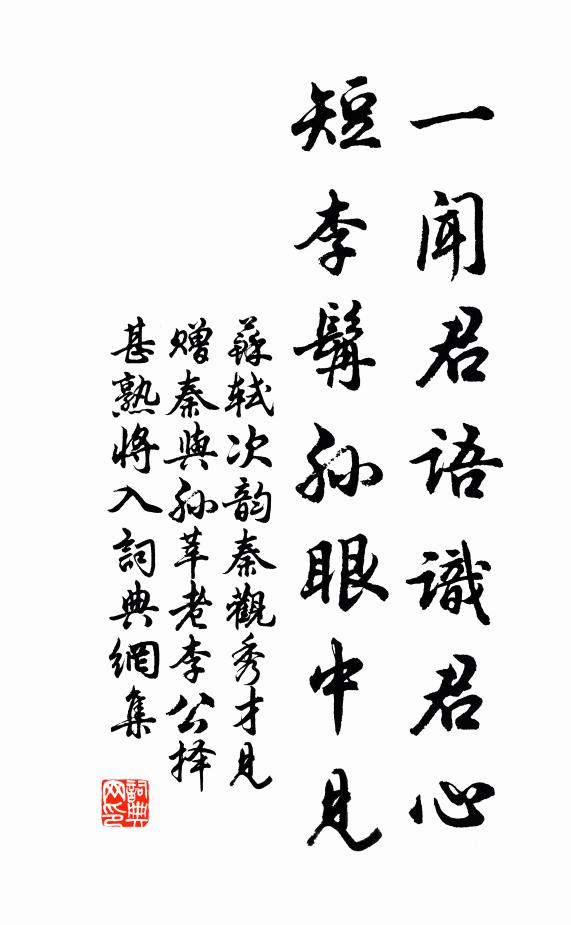 一闻君语識君心
短李髯孙眼中見
蘇轼次韵秦觀秀才見
赠秦與孙莘老李公择
甚熟將入詞典網集
詞典
网印